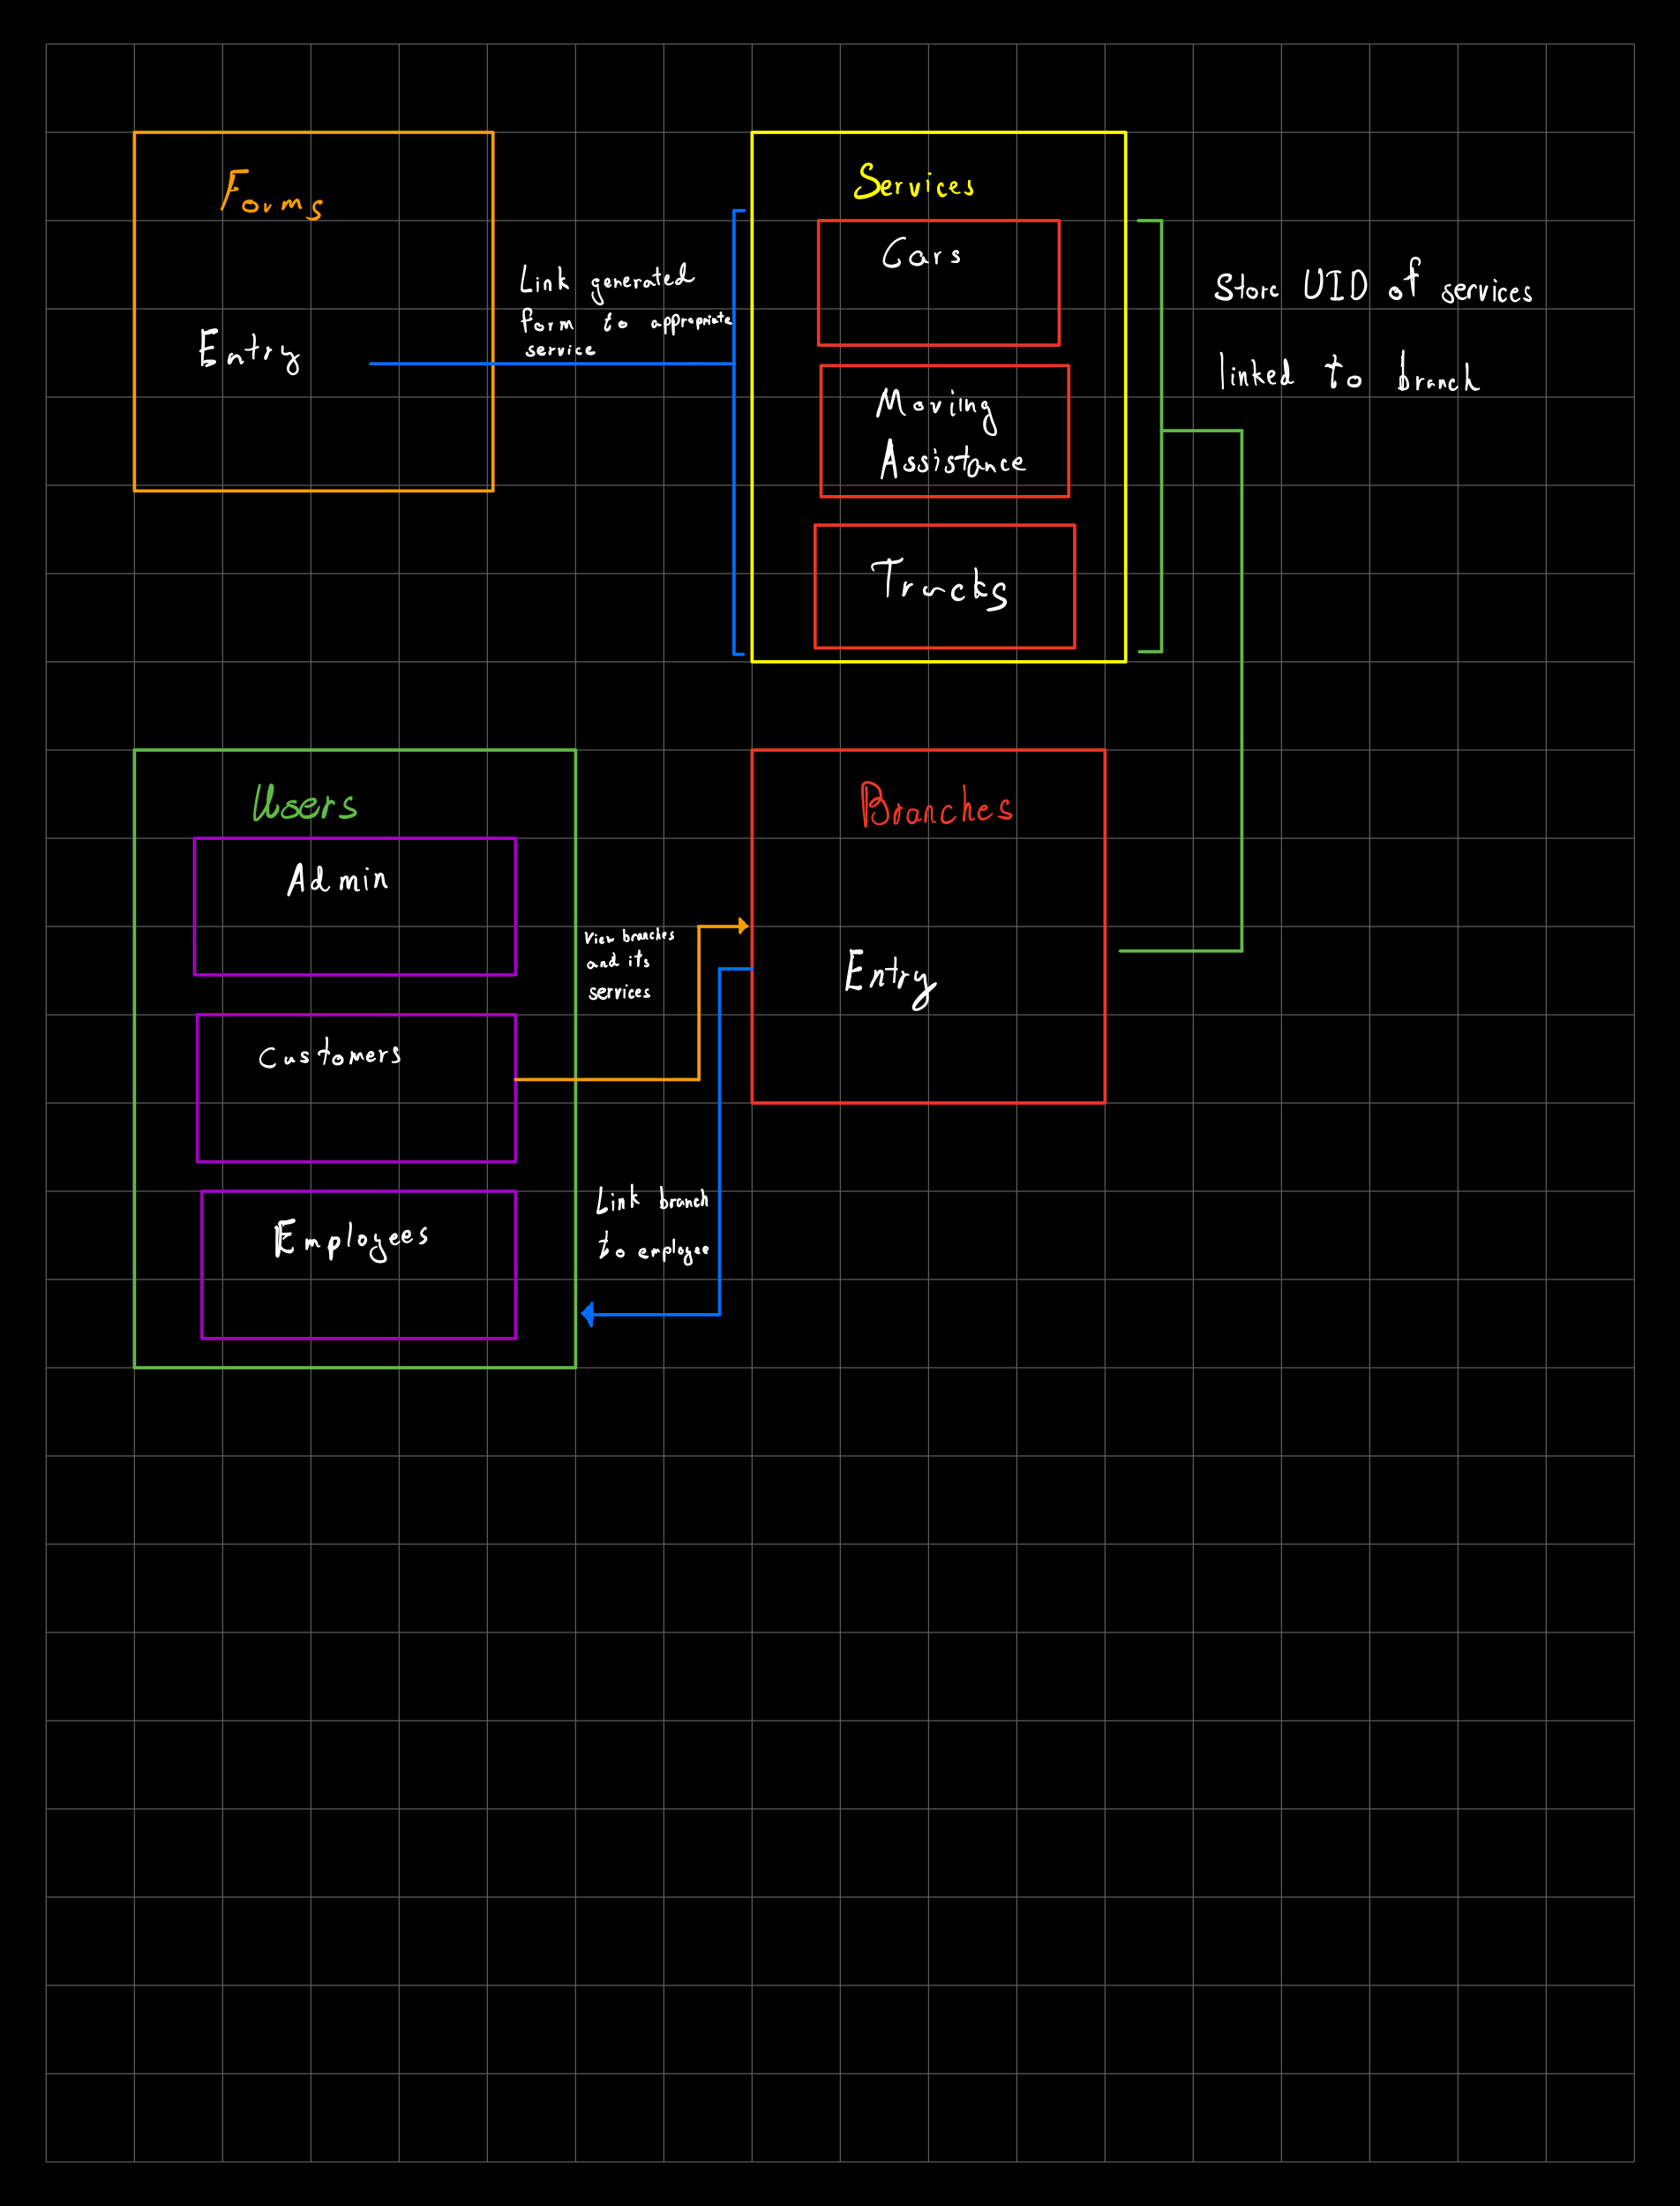 Forms
Entry
Link generated
form to appropriate
service
Services
Cars
Moving
Assistance
Trucks
Store UID of services
linked to branch
Users
Admin
Customers
Employees
View branches
and its
services
Link branch
to employee
Branches
Entry